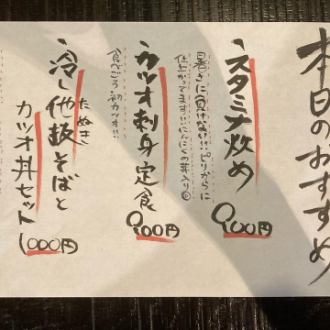 本日のおすすめ
・スタミナ炒め
暑さに負けない!!ピリからに
仕上がってます!!にんにくの芽入り
900円
・カツオ刺身定食
食べごろ 初カツオ!!
900円
・冷し他抜そばと
たぬき
カツオ丼セット
1,000円